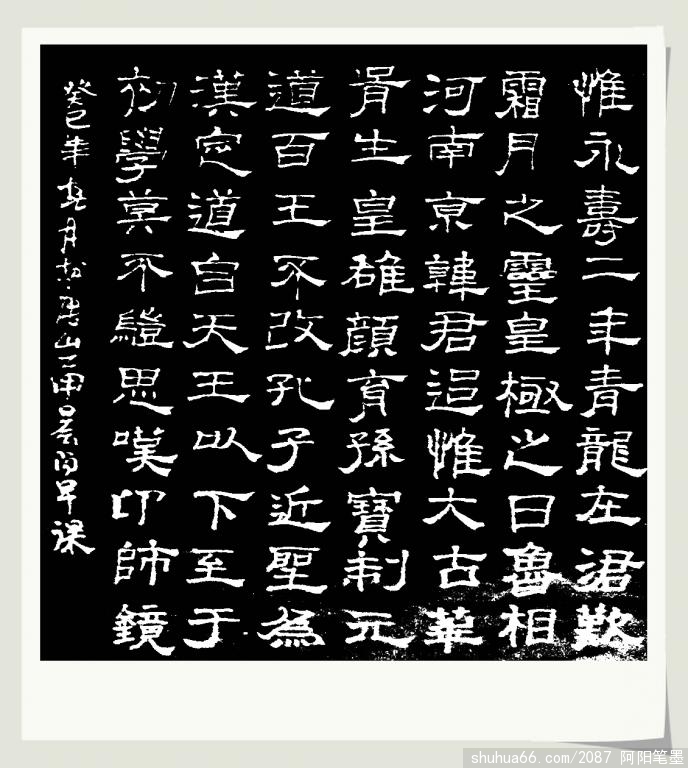 惟永壽二年青龍在涒歎
霜月之靈皇極之日魯相
河南京韓君追惟大古華
胥生皇雄顏育孫寶制元
道百王不改孔子近聖為
漢定道自天王以下至于
初學莫不思嘆卬師鏡
癸巳年春月於山早课
shuhua66.com/2087 阿阳笔墨